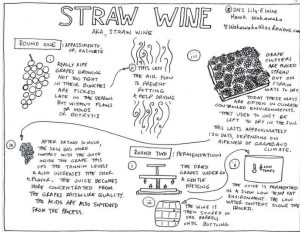 STRAW WINE
AKA, STRAW WINE
© 2012 Lily-Elaine
Hawk Wakawaka
WakawakaWineReviews.com
ROUND ONE: APPASSIMENTO,
OR, PASSERITO
i
REALLY RIPE
GRAPES GROWING
NOT TOO TIGHT
IN THEIR BUNCHES
ARE PICKED
LATE IN THE SEASON
BUT WITHOUT FLAWS
OR MOLDS
OR BOTRYTIS
AIR FLOW
TO PREVENT
ROTTING
& HELP DRYING
GRAPE
CLUSTERS
ARE PLACED
SPREAD
OUT ON
STRAW
MATS TO DRY.
TODAY THESE MATS
ARE OFTEN IN CLIMATE
CONTROLLED ENVIRONMENTS.
THEY USED TO JUST BE
LEFT TO DRY IN THE SUN.
THIS LASTS APPROXIMATELY
DAYS, DEPENDING ON
RIPENESS OF GRAPES AND
CLIMATE.
AFTER DRYING
THE SKIN HAS MORE
CONTACT WITH THE JUICE
INSIDE THE GRAPE. THIS
UPS THE TANNIN LEVELS
& ALSO INCREASES THE
FLAVOR. THE JUICE BECOMES
MORE CONCENTRATED FROM
THE GRAPES
THE ACIDS ARE ALSO SOFTENED
FROM THE PROCESS.
ROUND TWO: FERMENTATION
THE DRIED
GRAPES UNDERGO
A GENTLE
PRESSING
LOW
TEMPS
THE WINE IS FERMENTED
IN A SLOW LOW TEMP
ENVIRONMENT. THE LOW
WATER CONTENT SLOWS THE
PROCESS.
THE WINE IS
THEN STORED IN
OAK BARRELS
UNTIL BOTTLING